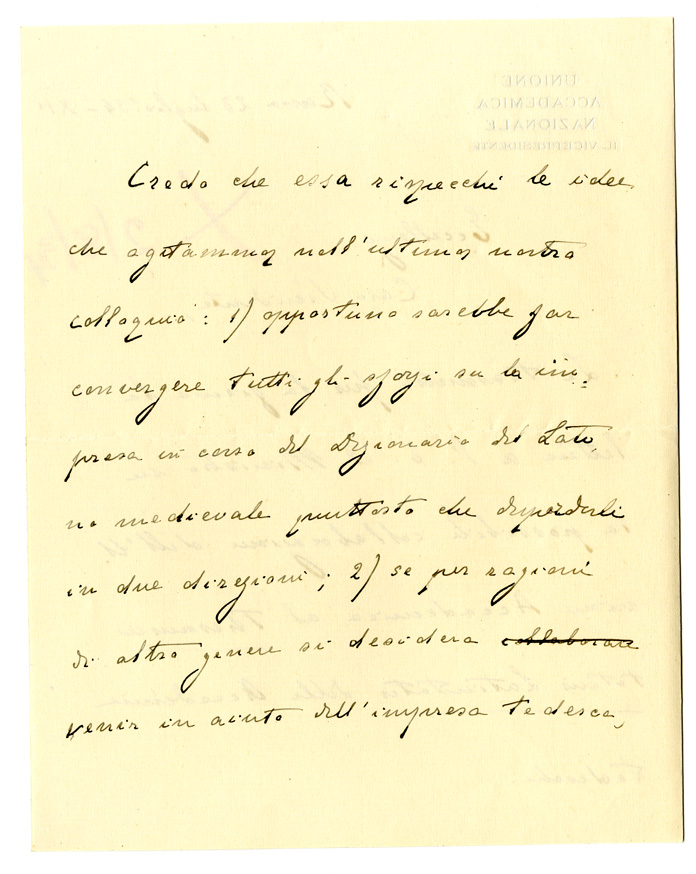 Credo che essa rispecchi le idee
che agitammo nell'ultimo nostro
colloquio: 1) opportuno sarebbe far
convergere tutti gli sforzi su la im=
presa in corso del Dizionario del Lati
no medievale piuttosto che disperderli
in due direzioni; 2) se per ragioni
di altro genere si desidera collaborare
venir in aiuto dell'impresa tedesca,
UNIONE
ACCADEMICA
NAZIONALE
IL VICEPRESIDENTE